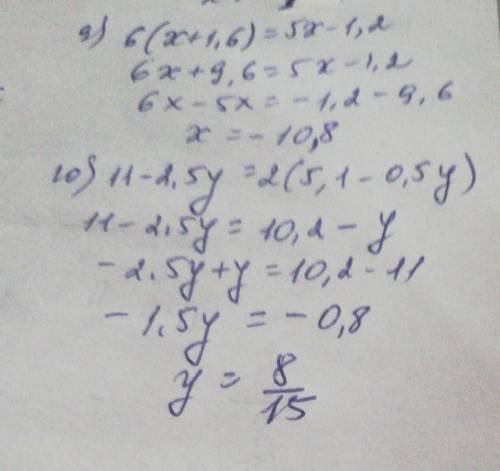 9) 6(x+1,6)=5x-1,2
6x+9,6=5x-1,2
6x-5x=-1,2-9,6
x=-10,8
10) 11-2,5y=2(5,1-0,5y)
11-2,5y=10,2-y
-2,5y+y=10,2-11
-1,5y=-0,8
y=8/15